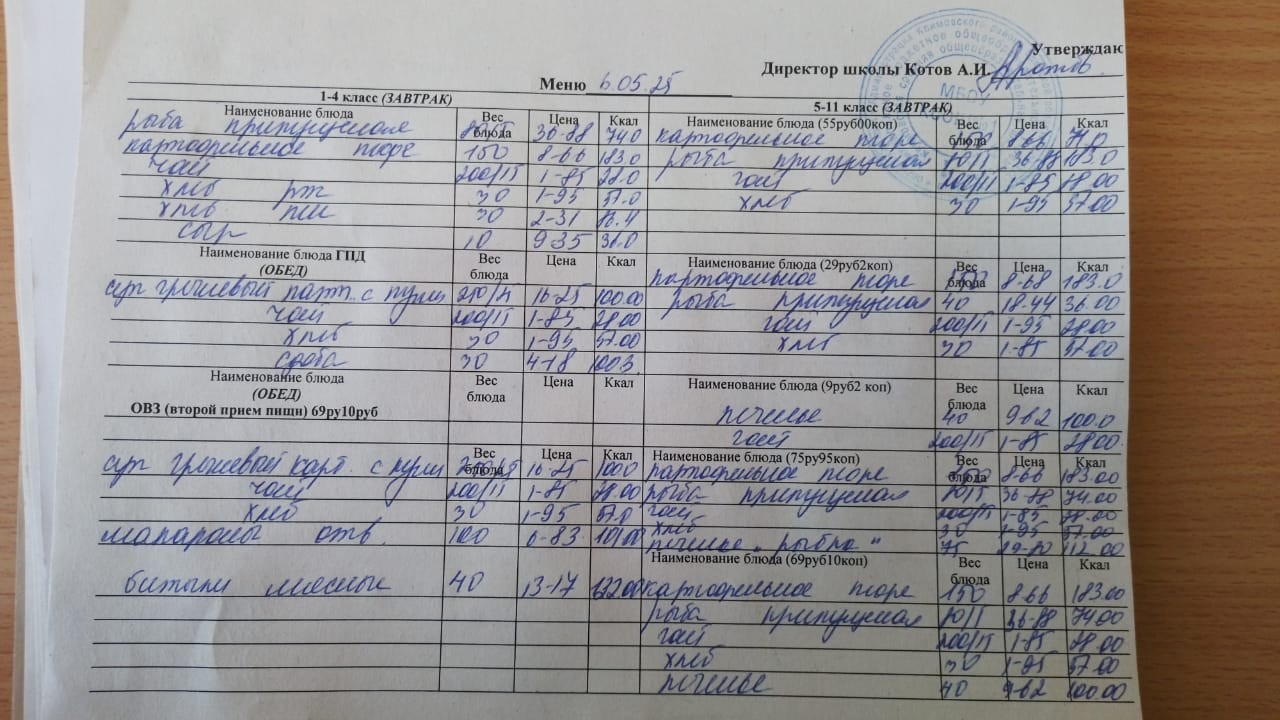 Утверждаю
Директор школы Котов А.И.
Меню 6.05.25
1-4 класс (ЗАВТРАК)
Наименование блюда Вес блюда Цена Ккал
рыба припущеная 36-88 74.0
картофельное пюре 150 8-66 183.0
чай 200/15 1-85 28.0
хлеб рж 30 1-95 57.0
хлеб пш 30 2-31
сыр 10 9-35 36.0
Наименование блюда ГПД Вес Цена Ккал
(ОБЕД) блюда
суп грошевый карт. с кури 16-25 100.00
чай 200/15 1-85 28.00
хлеб 30 1-95 57.00
сдоба 30 4-18 100.3
Наименование блюда Вес Цена Ккал
(ОБЕД) блюда
ОВЗ (второй прием пищи) 69ру10руб
Вес блюда Цена Ккал
суп грошевый карт. с кури 16-25 100.0
чай 200/15 1-85 28.00
хлеб 30 1-95 57.0
макароны отв. 100 6-83 101.00
битыки мясные 40 13-17 132.00
5-11 класс (ЗАВТРАК)
Наименование блюда (55руб00коп) Вес блюда Цена Ккал
картофельное пюре 150 8-66
рыба припущеная 36-88 183.0
чай 200/15 1-85 28.00
хлеб 30 1-95 57.00
Наименование блюда (29руб2коп) Вес блюда Цена Ккал
картофельное пюре 150 8-68 183.0
рыба припущеная 40 18-44 36.00
чай 200/15 1-95 28.00
хлеб 30 1-85 57.00
Наименование блюда (9руб2 коп) Вес блюда Цена Ккал
печенье 40 9-62 100.0
чай 200/15 1-85 28.00
Наименование блюда (75ру95коп) Вес блюда Цена Ккал
картофельное пюре 150 8-66 183.00
рыба припущеная 36-88 74.00
чай 200/15 1-85 28.00
хлеб 30 1-95 57.00
печенье „рыбка" 75 112.00
Наименование блюда (69ру10коп) Вес блюда Цена Ккал
картофельное пюре 150 8-66 183.00
рыба припущеная 36-88 74.00
чай 200/15 1-85 28.00
хлеб 30 1-95 57.00
печенье 40 9-62 100.00